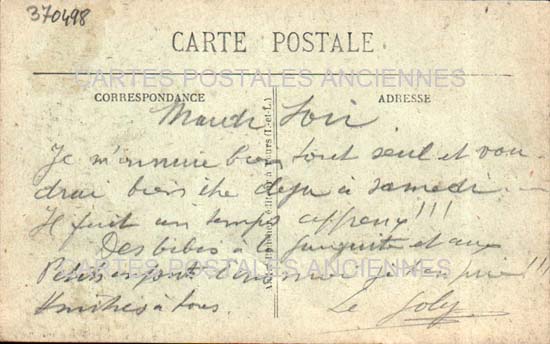 370498
CARTE POSTALE
CARTES POSTALES ANCIENNES
CORRESPONDANCE
ADRESSE
Mardi Soir
Je m'ennuie bien tout seul et vou-
drai bien être déjà à samedi
Il fait un temps affreux!!!
Des bibis à la et aux
Petits enfants
CARTES POSTALES ANCIENNES
Amitiés à tous. Le Joly